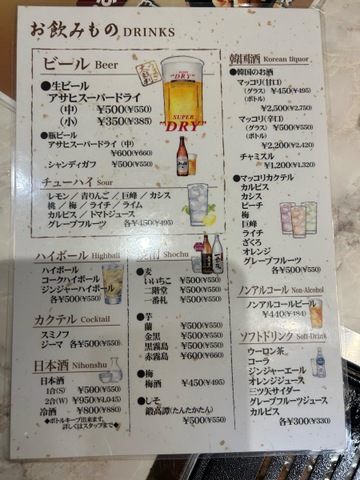 お飲みもの DRINKS
ビール Beer
●生ビール
アサヒスーパードライ
(中) ¥500(¥550)
(小) ¥350(¥385)
●瓶ビール
アサヒスーパードライ(中)
¥600(¥660)
シャンディガフ ¥500(¥550)
SUPER
"DRY"
チューハイ Sour
レモン／青りんご／巨峰／カシス
桃／梅／ライチ／ライム
カルピス／トマトジュース
グレープフルーツ 各¥450(¥495)
ハイボール Highball
ハイボール
コークハイボール
ジンジャーハイボール
各¥500(¥550)
カクテル Cocktail
スミノフ
ジーマ 各¥500(¥550)
日本酒 Nihonshu
日本酒
1合(S) ¥500(¥550)
2合(W) ¥950(¥1,045)
冷酒 ¥800(¥880)
◆ボトルキープ出来ます。
詳しくはスタッフまで◆
Shochu
●麦
いいちこ ¥500(¥550)
二階堂 ¥500(¥550)
一番札 ¥500(¥550)
●芋
蘭 ¥500(¥550)
金黒 ¥500(¥550)
黒霧島 ¥500(¥550)
赤霧島 ¥600(¥660)
●梅
梅酒 ¥450(¥495)
●しそ
鍛高譚(たんたかたん)
¥500(¥550)
韓国酒 Korean liquor
●韓国のお酒
マッコリ(甘口)
(グラス) ¥450(¥495)
(ボトル)
¥2,500(¥2,750)
マッコリ(辛口)
(グラス) ¥500(¥550)
(ボトル)
¥2,200(¥2,420)
チャミスル
¥1,200(¥1,320)
●マッコリカクテル
カルピス
カシス
ピーチ
梅
巨峰
ライチ
ざくろ
オレンジ
グレープフルーツ
各¥500(¥550)
ノンアルコール Non-Alcohol
ノンアルコールビール
¥440(¥484)
ソフトドリンク Soft-Drink
ウーロン茶
コーラ
ジンジャーエール
オレンジジュース
三ツ矢サイダー
グレープフルーツジュース
カルピス
各¥300(¥330)